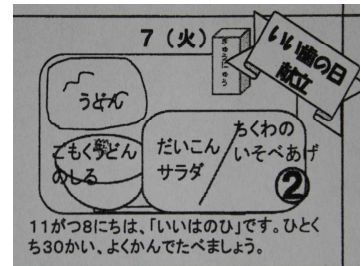 7（火）
ぎゅうにゅう
いい歯の日
献立
うどん
ごもくうどん
のしる
だいこん
サラダ
ちくわの
いそべあげ
②
11がつ8にちは、「いいはのひ」です。ひとく
ち30かい、よくかんでたべましょう。